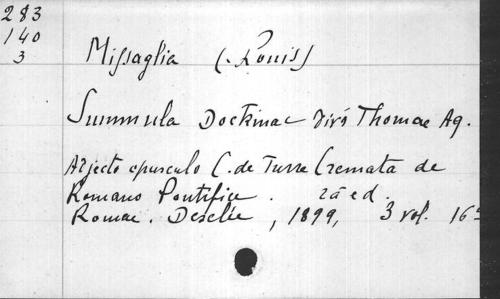 283
140
3
Missaglia (Louis)
Summula Doctrinae Divi Thomae Aq.
Adjecto opusculo C. de Turre Cremata de
Romano Pontifice. 2a ed.
Romae. Desclée, 1899, 3 vol. 16°